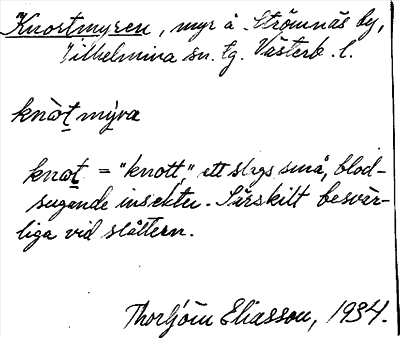 Knortmyren, myr å Strömnäs by,
Vilhelmina sn. tg. Västerb. l.
knòt mýra
knot = "knott," ett slags små, blod-
sugande insekter. Särskilt besvär-
liga vid slåttern.
Thorbjörn Eliasson, 1934.